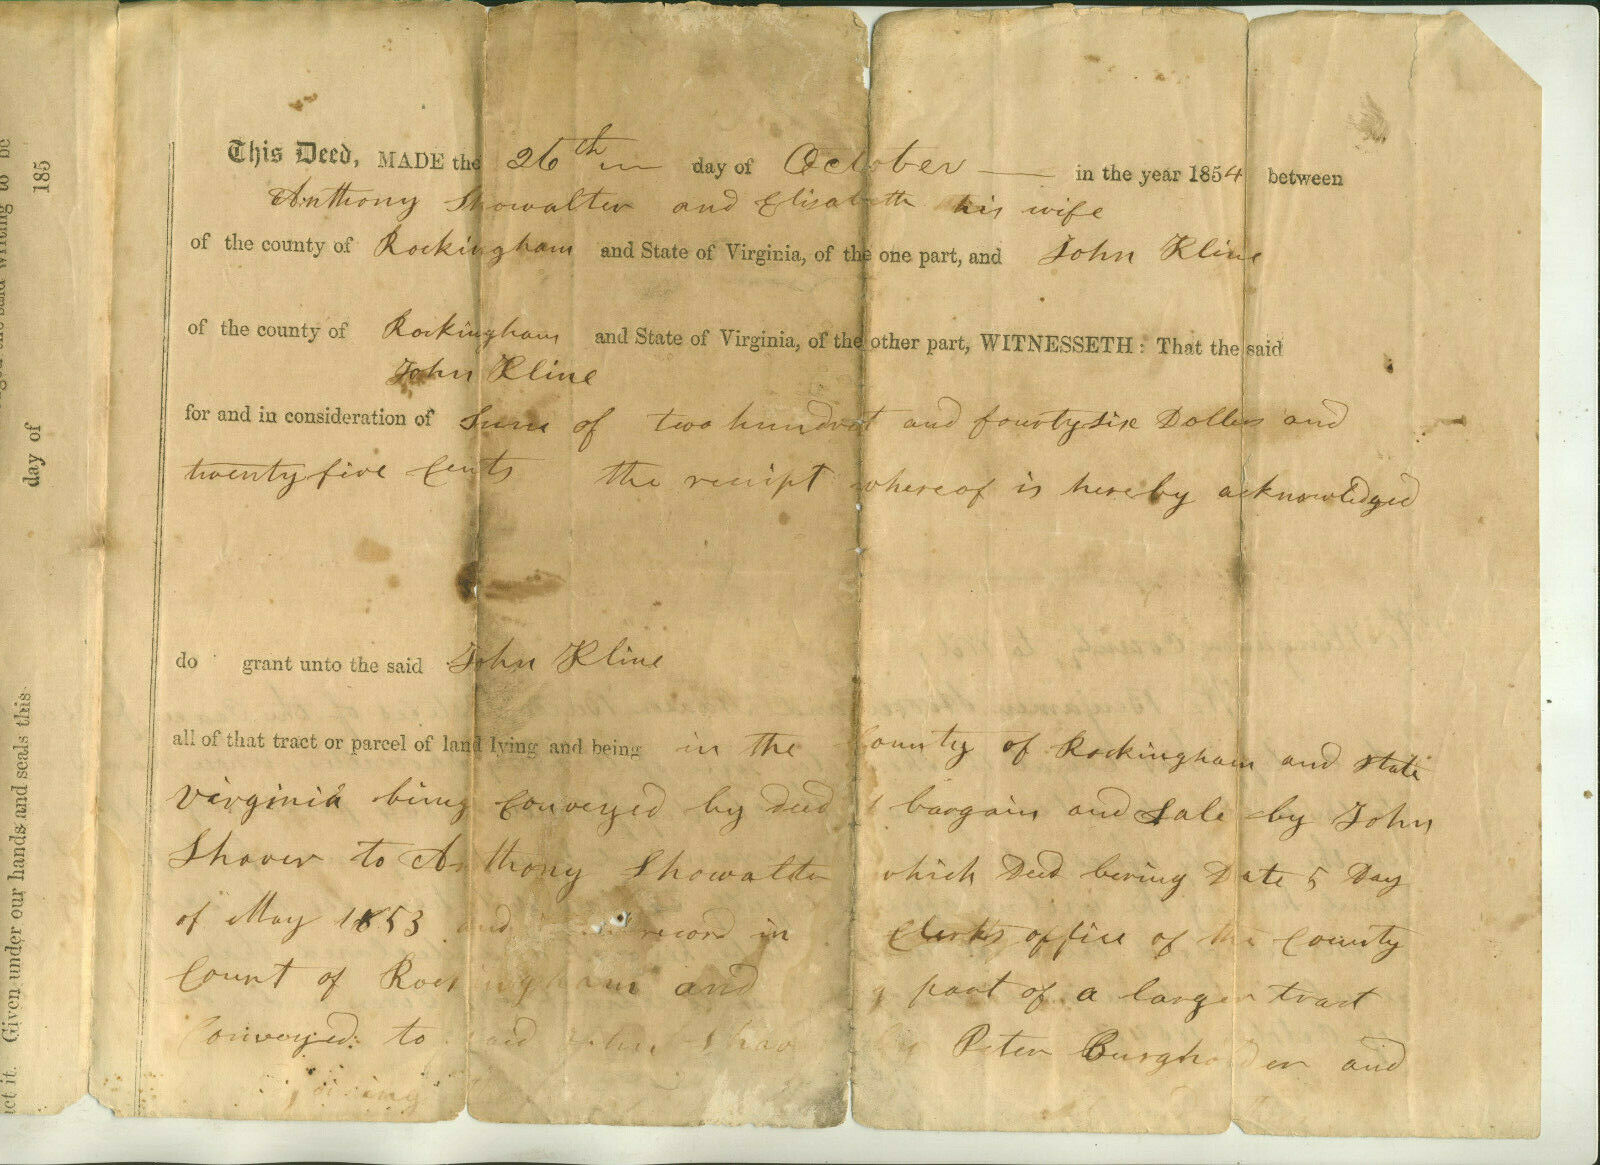 This Deed, MADE the 26th in day of October in the year 1854 between
Anthony Showalter and Elisabeth his wife
of the county of Rockingham and State of Virginia, of the one part, and John Kline
of the county of Rockingham and State of Virginia, of the other part, WITNESSETH: That the said
John Kline
for and in consideration of Sume of two hundret and fourtysix Dollers and
twentyfive Cents the recipt whereof is hereby acknowledged
do grant unto the said John Kline
all of that tract or parcel of land lying and being in the County of Rockingham and state
Virginia being Conveyed by deed bargain and Sale by John
Shaver to Anthony Showalter which Deed bering Date 5 Day
of May 1853 and record in Clerks office of the County
Court of Rockingham and part of a larger tract
Conveyed to said John Shav Peter Burgholder and
day of 185
Given under our hands and seals this
the said writing to be
act it.